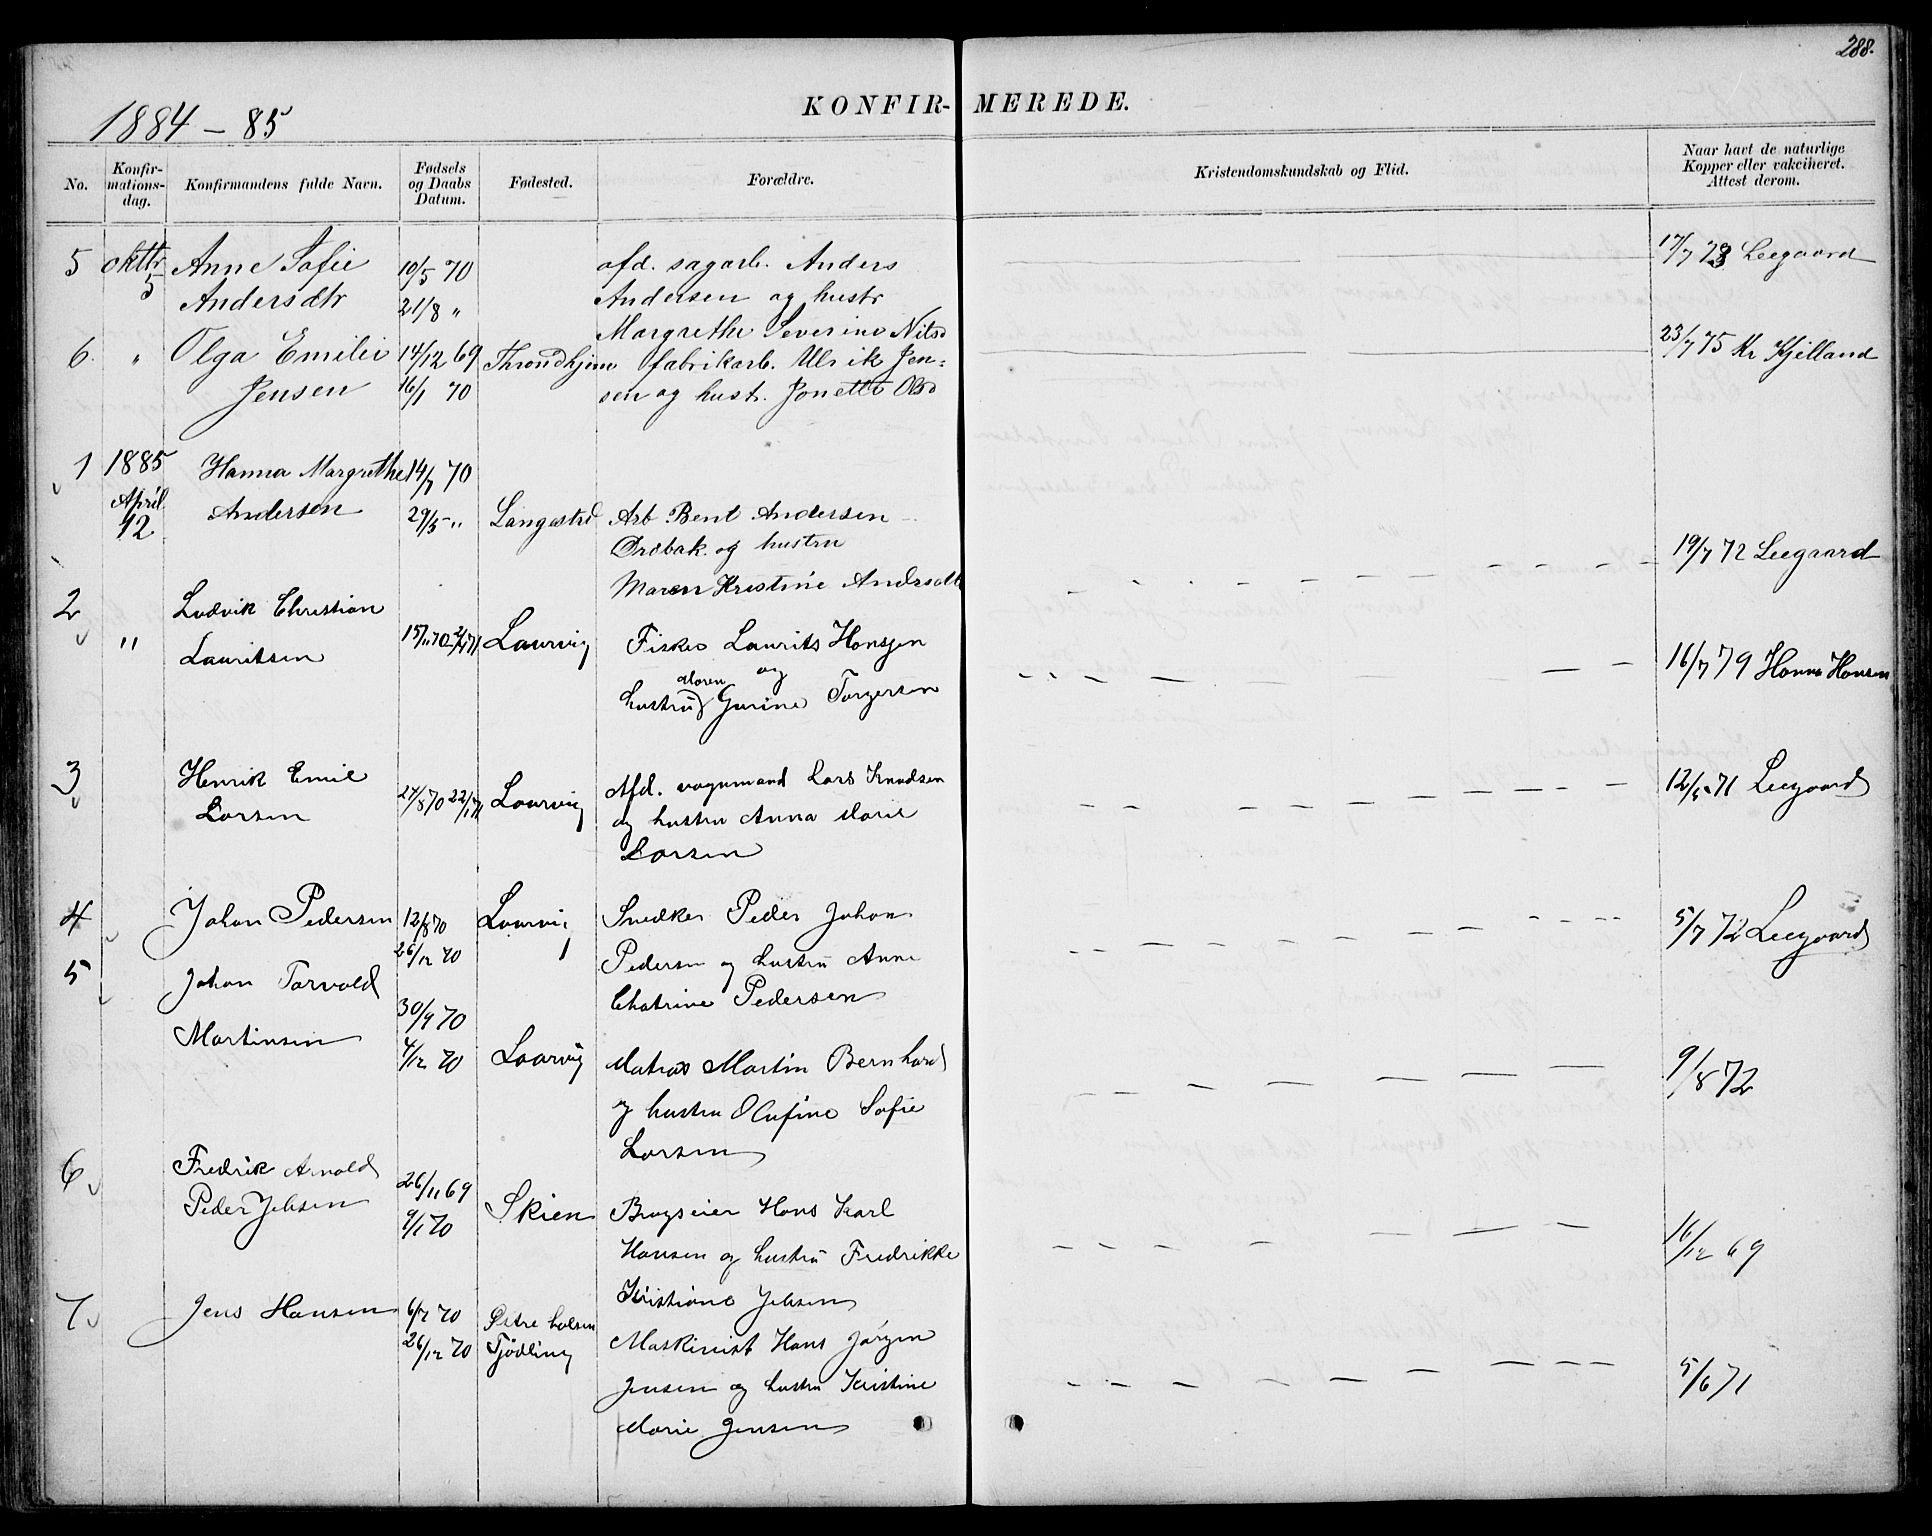 288.
1884 - 85
KONFIR- MEREDE.
No.
Konfir-
mations-
dag.
Konfirmandens fulde Navn.
Fødsels
og Daabs
Datum.
Fødested.
Forældre.
Kristendomskundskab og Flid.
Naar havt de naturlige
Kopper eller vakcineret.
Attest derom.
5 okttr Anne Sofie 10/5 70 afd. sagarb. Anders 17/7 73 Leegaard
5 Andersdtr 21/8 " Andersen og hustr
Margrethe Severine Nilsd
6. " Olga Emilie 14/12 69 Throndhjem fabrikarb. Ulrik Jen= 23/7 75 Kr Kjelland
Jensen 16/1 70 sen og hustr. Jonette Olsd
1 1885 Hanna Margrethe 14/7 70
April Andersen 29/5 - " Langestrd Arb. Bent Andersen
12 Ørebak og hustru 19/7 72 Leegaard
Maren Kristine Andrsdtt
2 Ludvik Christian
" Lauritsen 15/11 70 2/4 71 Laurvig Fisker Laurits Hansen 16/7 79 Hanna Hansen
og
hustru Maren Gurine Torgersen
3 Henrik Emil 27/8 70 22/1 71 Laurvig Afd. vognmand Lars Knudsen 12/5 71 Leegaard
Larsen og hustru Anna Marie
Larsen
4 Johan Pedersen 12/8 70 Laurvig Snedker Peder Johan 5/7 72 Leegaard
26/12 70 Pedersen og hustru Anne
5 Johan Torvald Chatrine Pedersen
30/9 70
Martinsen 4/12 70 Laurvig Matros Martin Bernhard 9/8 72
og hustru Olufine Sofie
Larsen
6 Fredrik Arnold 26/11 69
Peder Jebsen 9/1 70 Skien Brugseier Hans Karl 16/12 69
Hansen og hustru Fredrikke
Kristiane Jebsen
7 Jens Hansen 6/7 70 Østre halsen
26/12 70 Tjödling Maskinist Hans Jørgen
Jensen og hustru Kristine 5/6 71
Marie Jensen